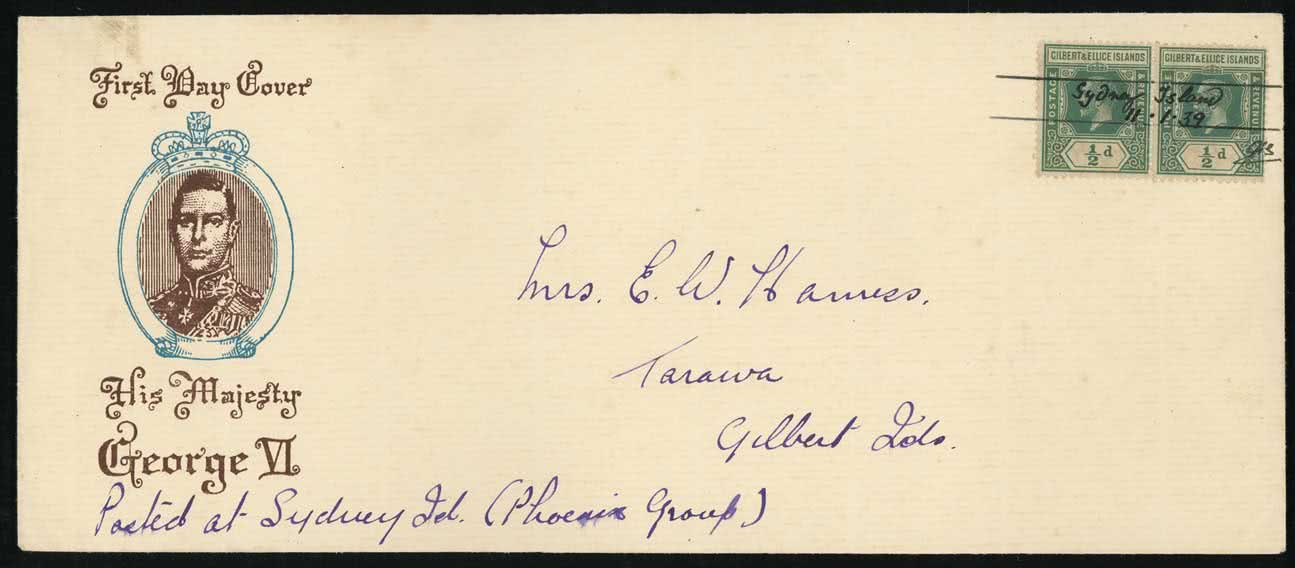 First Day Cover
GILBERT & ELLICE ISLANDS GILBERT & ELLICE ISLANDS
POSTAGE & REVENUE POSTAGE & REVENUE
Sydney Island
11·1·39
½d ½d
Mrs. E. W. Harness.
Tarawa
Gilbert Ids.
His Majesty
George VI
Posted at Sydney Id. (Phoenix Group)